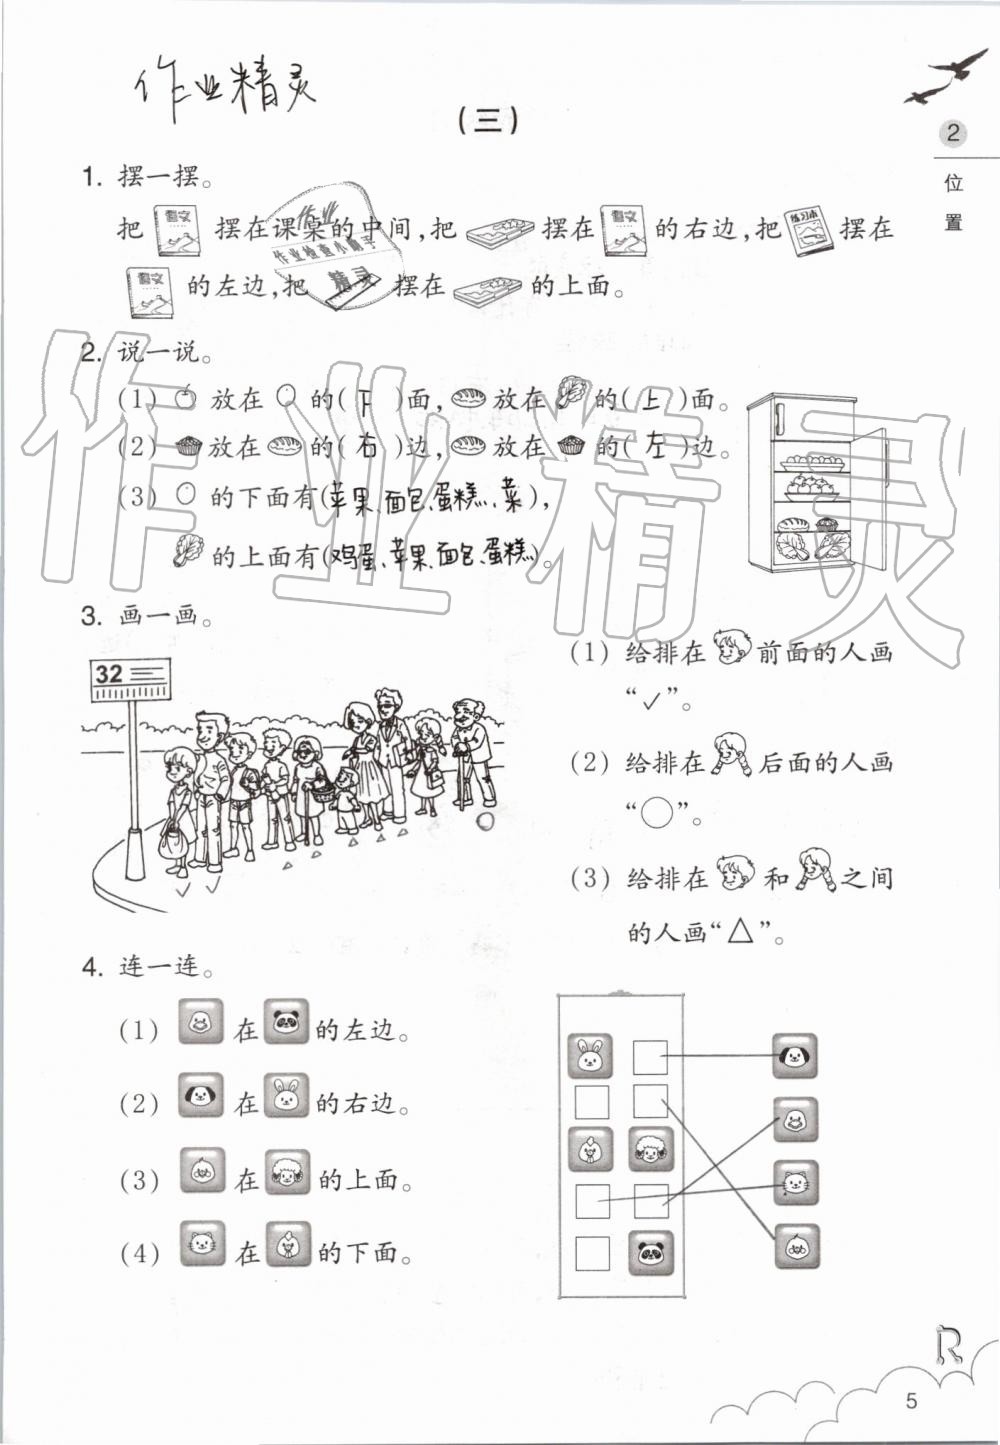 作业精灵
(三)
2
位
置
1. 摆一摆。
把 语文 摆在课桌的中间,把 摆在 语文 的右边,把 练习本 摆在
语文 的左边,把 摆在 的上面。
作业
作业检查小帮手
精灵
2. 说一说。
(1) 放在 的( 下 )面, 放在 的( 上 )面。
(2) 放在 的( 右 )边, 放在 的( 左 )边。
(3) 的下面有(苹果、面包、蛋糕、菜),
的上面有(鸡蛋、苹果、面包、蛋糕)。
作业精灵
3. 画一画。
32
(1) 给排在 前面的人画
“✓”。
(2) 给排在 后面的人画
“○”。
(3) 给排在 和 之间
的人画“△”。
4. 连一连。
(1) 在 的左边。
(2) 在 的右边。
(3) 在 的上面。
(4) 在 的下面。
R
5